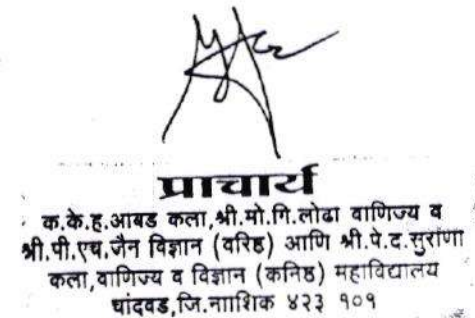 प्राचार्य
क.के.ह.आबड कला,श्री.मो.गि.लोढा वाणिज्य व
श्री.पी.एच.जैन विज्ञान (वरिष्ठ) आणि श्री.पे.द.सुराणा
कला,वाणिज्य व विज्ञान (कनिष्ठ) महाविद्यालय
चांदवड,जि.नााशिक ४२३ १०१